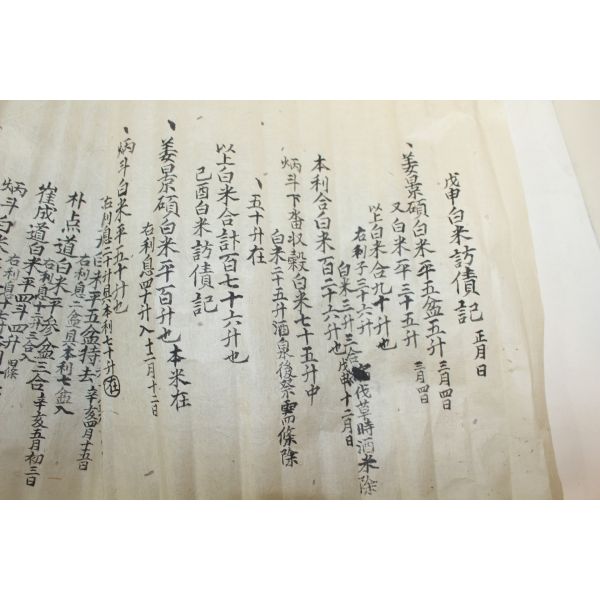 戊申白米訪債記 正月日
、姜景碩白米平五盆五升 三月四日
又白米平三十五升 三月四日
以上白米合九十升也
右利子三十六升 戊申十二月日
白米三升三合 伐草時酒米除
本利合白米百二十六升也
炳斗下畓收穀白米七十五升中
白米二十五升酒泉後祭需條除
、五十升在
以上白米合計百七十六升也
己酉白米訪債記
、姜景碩白米平百升也 本米在
右利息四十升入 十二月十二日
、炳斗白米平五十升也
右利息二十升具本利七十升 在
白米平五盆特去 辛亥四月十五日
朴点道白米平參盆三合 辛亥五月初三日
右利息二盆具本利七盆入
崔成道白米平四斗四升
炳斗白米